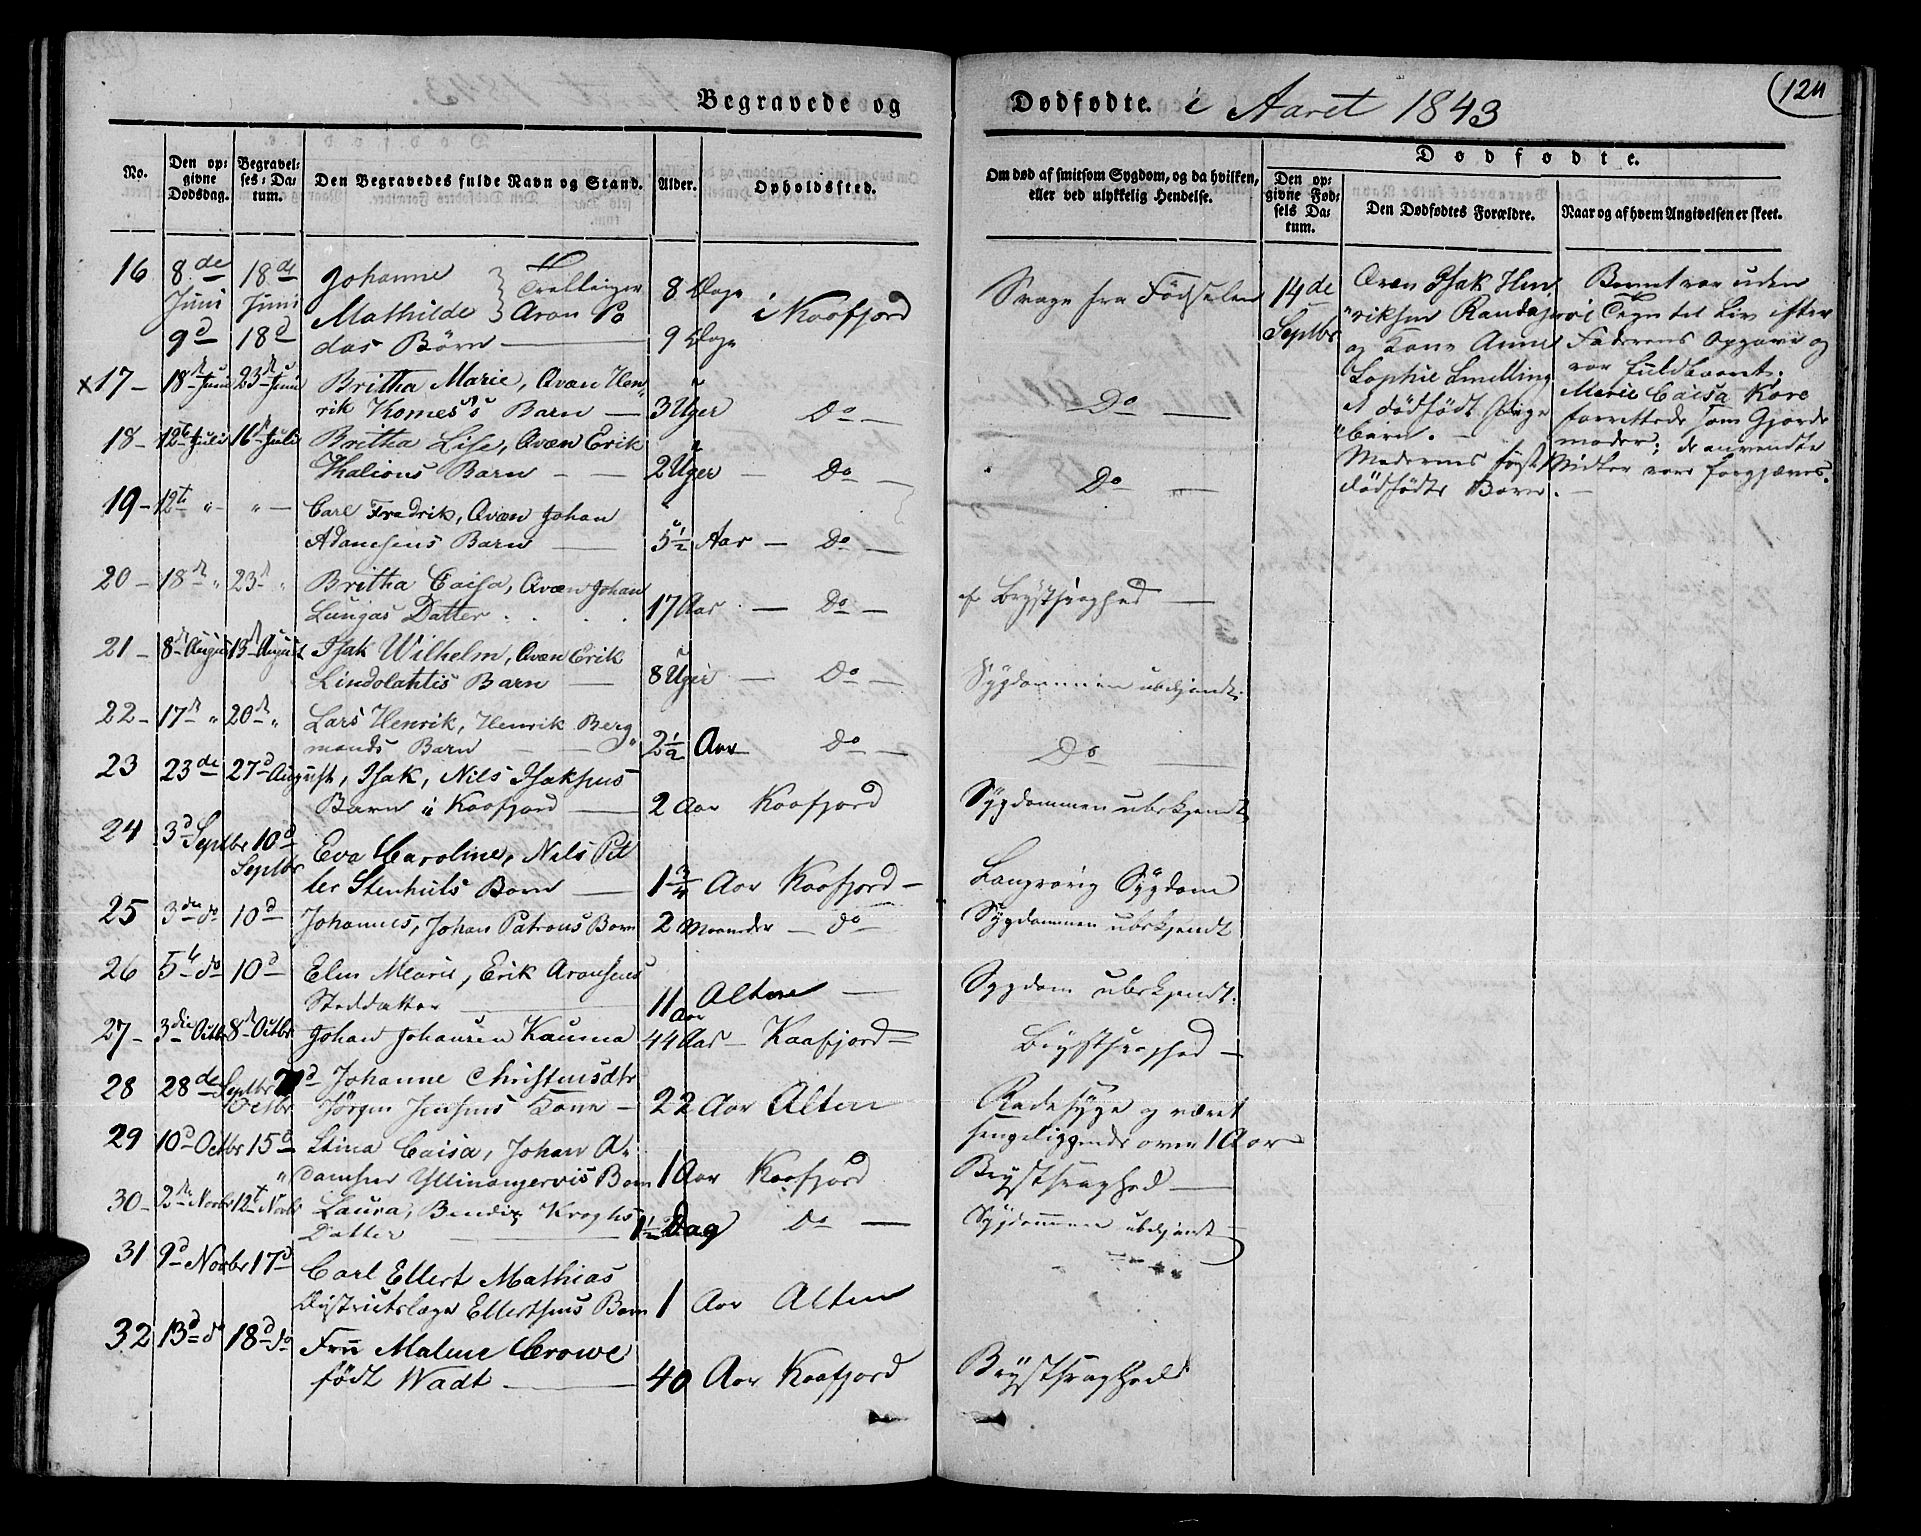 Begravede og Dødfødte. i Aaret 1843
124
No.
Den op-
givne
Dødsdag.
Begravel-
ses-Da-
tum.
Den Begravedes fulde Navn og Stand.
Alder.
Opholdssted.
Om død af smitsom Sygdom, og da hvilken,
eller ved ulykkelig Hendelse.
Dødfødte.
Den op-
givne Fød-
sels Da-
tum.
Den Dødfødtes Forældre.
Naar og af hvem Angivelsen er skeet.
16 8de Juni 18de Juni Johanne
Mathilde Tvillinger Aron Po
das Børn
8 Dage i Kaafjord Svage fra Fødselen
9d 18d 9 Dage
17 - 18d Juni 23d Juni Britha Marie, Qvæn Hen
rik Komes's Barn 3 Uger Do Do
18 - 12te Juli 16d Juli Britha Lise, Qvæn Erik
Thalions Barn 2 Uger Do Do
19 - 12t " " Carl Fredrik, Qvæn Johan
Adamsens Barn 5 1/2 Aar Do
20 - 18d " 23d " Britha Caisa, Qvæn Johan
Lungas Datter 17 Aar Do af Brystsvaghed
21 - 8de August 13d August Isak Wilhelm, Qvæn Erik
Lindolahtis Barn 8 Uger Do Sygdommen ubekjendt
22 - 17d " 20d " Lars Henrik, Henrik Berg
mands Barn 2 1/2 Aar Do Do
23 23de 27d August, Isak, Nils Isaksens
Barn i Kaafjord 2 Aar Kaafjord Sygdommen ubekjendt
24 3d Septbr 10d Septbr Eva Caroline, Nils Pet
ter Stenhuls Barn 1 3/4 Aar Kaafjord Langvarig Sygdom
25 3die do 10d Johannes, Johan Patrons Barn 2 Maaneder do Sygdommen ubekjendt
26 5te do 10d Elen Marie, Erik Aronsens
Steddatter 11 Aar Alten Sygdom ubekjendt.
27 - 3die Octbr 8d Octbr Johan Johansen Kauma 44 Aar Kaafjord Brystsvaghed
28 28de Septbr d Octbr Johanne Christensdtr
Jørgen Jensens Kone 22 Aar Alten Radesyge og været
sengeliggende over 1 Aar
29 10d Octbr 15d " Stina Caisa, Johan A-
damsen Yllinanjervis Barn 1 Aar Kaafjord Brystsvaghed
30 - 2den Novbr 12t Novbr Laura, Bendix Kroghs
Datter 1 1/2 Dag Do Sygdommen ubekjendt
31 9d Novbr 17d Carl Ellert Mathias
Districtslæge Ellertsens Barn 1 Aar Alten
32 13d do 18d do Fru Malene Crowe
født Wadt 40 Aar Kaafjord Brystsvaghed
14de
Septbr
Qvæn Isak Hen
riksen Randajervi
og Kone Anne
Sophie Smelling
et dødfødt Pige
barn.
Moderens første
dødfødte Barn.
Barnet var uden
Tegn til Liv efter
Faderens Opgave og
var fuldbaaret.
Marie Caisa Kore
forrettede som Gjorde
moder; de anvendte
Midler vare forgjæves.